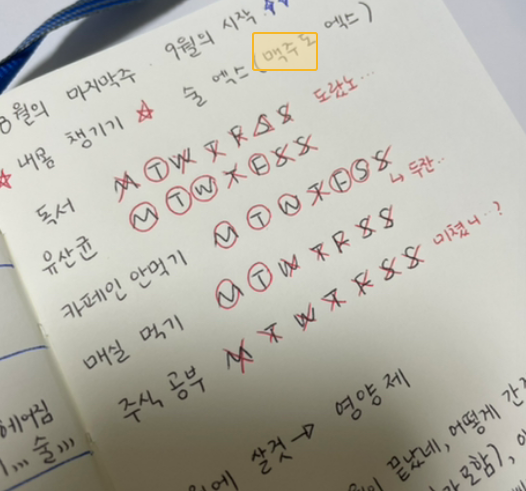 8월의 마지막주. 9월의 시작.
☆ 내몸 챙기기 ☆ 술 엑스 (맥주도 엑스)
독서 M T W T F S S 도랐노...
유산균 M T W T F S S
카페인 안먹기 M T W T F S S ↳ 두잔..
매실 먹기 M T W T F S S
주식 공부 M T W T F S S 미쳤니..?
헤어짐
... 술)))
에 살것 → 영양제
끝났네, 어떻게
포함),